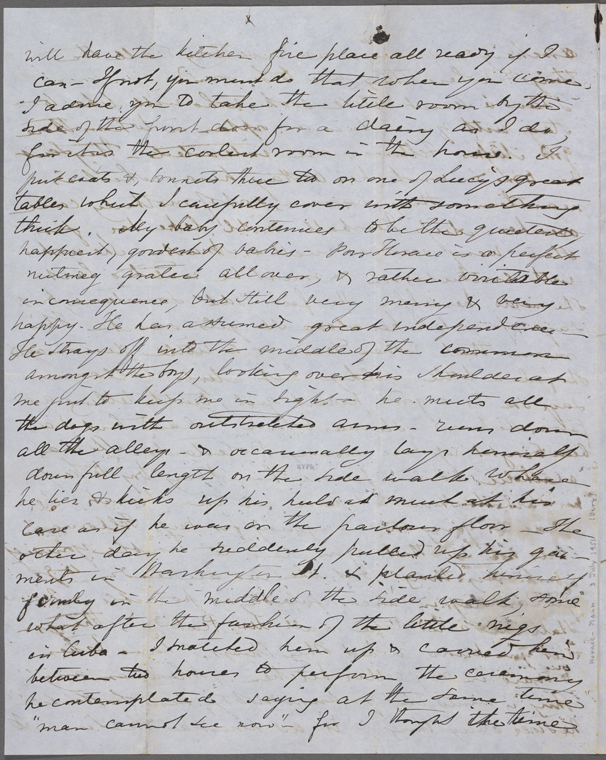 will have the kitchen fire place all ready if I
can - If not, you must do that when you come.
I advise you to take the little room by the
side of the front door for a dairy as I do,
for it is the coolest room in the house. I
put coats &, bonnets there too on one of Lucy's great
tables which I carefully cover with something
thick. My baby continues to be the quietest
happiest, goodest of babies - Poor Horace is a perfect
nutmeg grater all over, & rather irritable
in consequence, but still very merry & very
happy. He has assumed great independence
He strays off into the middle of the common
amongst the boys, looking over his shoulder at
me just to keep me in sight - he meets all
the dogs with outstretched arms - runs down
all the alleys - & occasionally lays himself
down full length on the side walk where
he lies & kicks up his heels as much at his
ease as if he was on the parlour floor - The
other day he suddenly pulled up his gar-
ments in Washington St. & planted himself
firmly in the middle of the side walk, some
what after the fashion of the little nigs
in Cuba - I snatched him up & carried him
between two houses to perform the ceremony
he contemplated saying at the same time
"man cannot see now" - for I thought the time